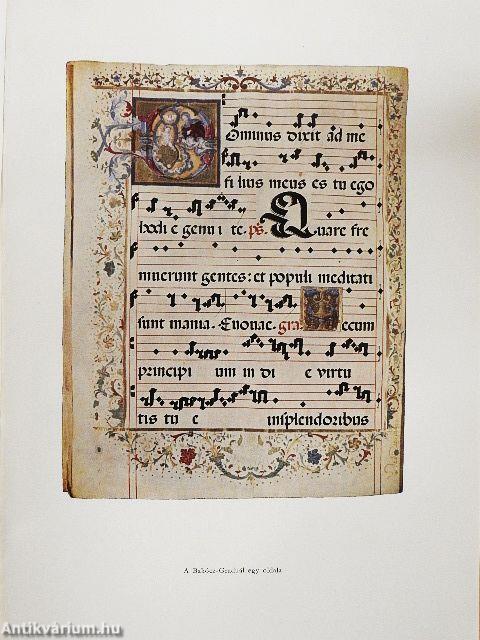 Dominus dixit ad me
filius meus es tu ego
hodi e genu i te. ps. Quare fre
muerunt gentes: et populi meditati
sunt inania. Evovae. gra. Tecum
principi um in di e virtu
tis tu e in splendoribus
A Bakócz-Graduál egy oldala
Antikvárium.hu